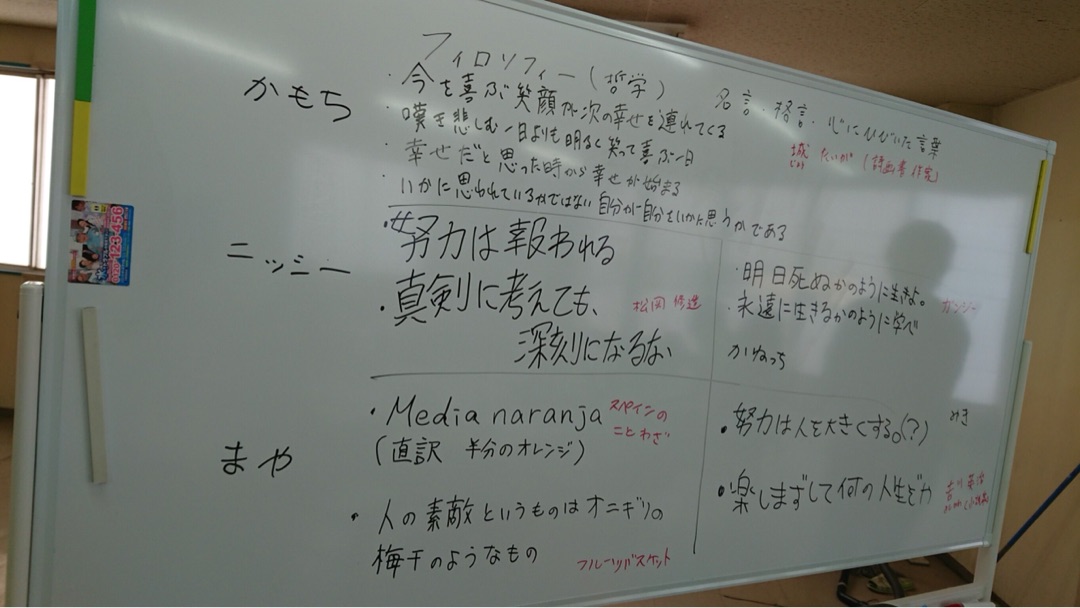 フィロソフィー(哲学)
名言・格言・心にひびいた言葉
かもち
・今を喜ぶ笑顔が次の幸せを連れてくる
・嘆き悲しむ一日よりも明るく笑って喜ぶ一日
・幸せだと思った時から幸せが始まる
・いかに思われているかではない 自分が自分をいかに思うかである
たいが
ニッシー
・努力は報われる
・真剣に考えても、
深刻になるな
松岡 修造
・明日死ぬかのように生きよ。
・永遠に生きるかのように学べ
ガンジー
かねっち
まや
・Media naranja
(直訳 半分のオレンジ)
スペインの
ことわざ
・人の素敵というものはオニギリの
梅干のようなもの
フルーツバスケット
みき
・努力は人を大きくする。(?)
・楽しまずして何の人生ぞや
吉川英治
123-456